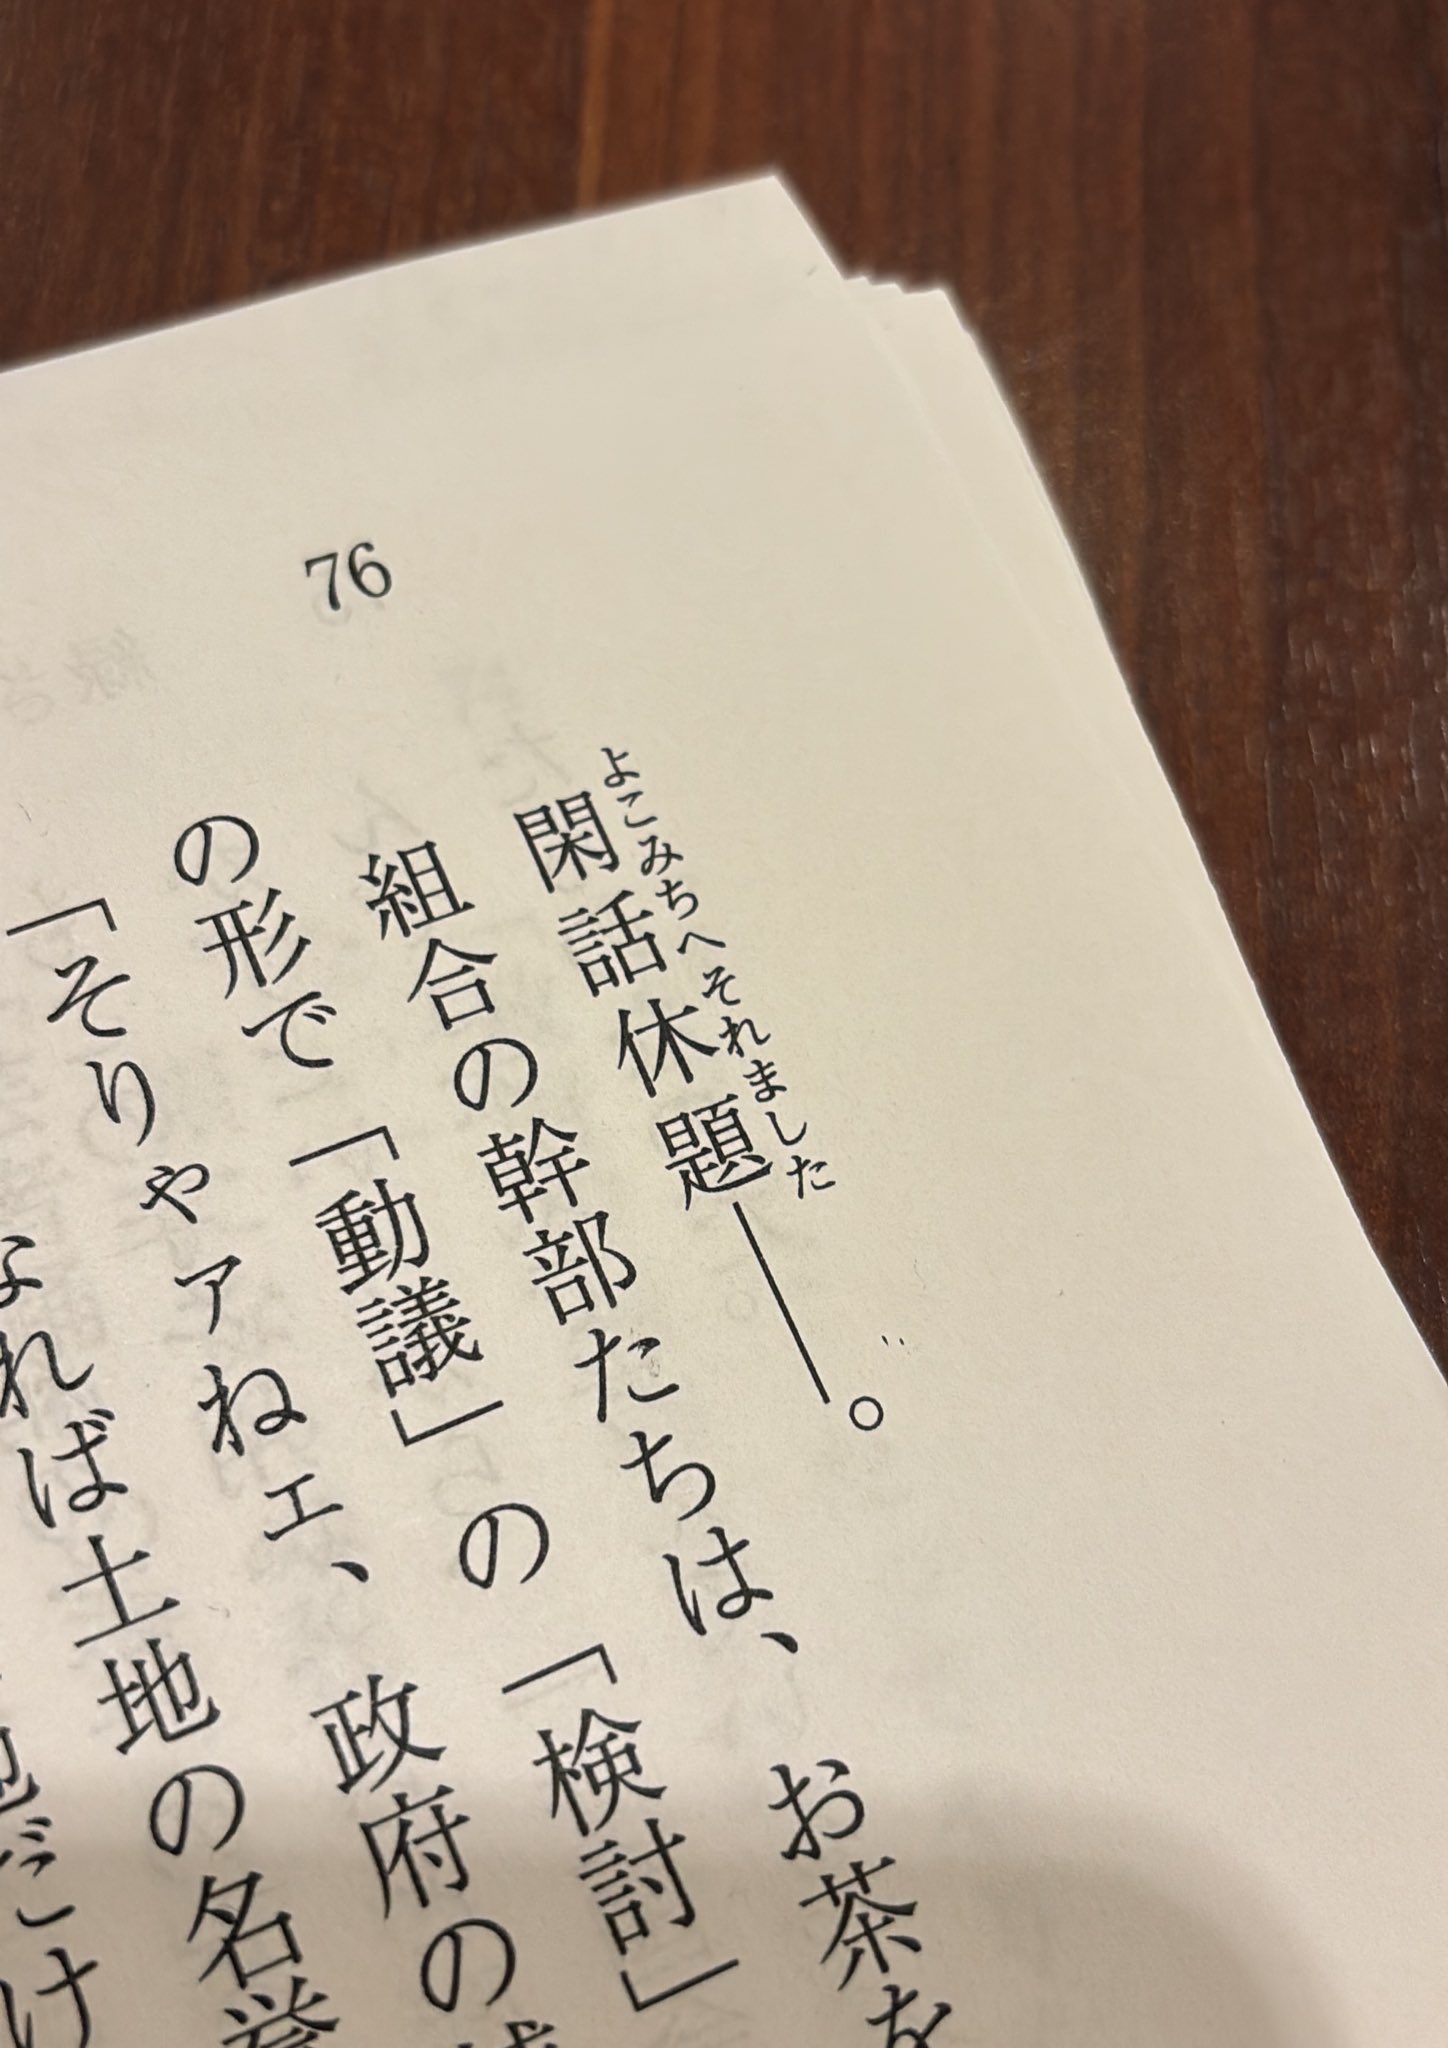 76
閑話休題――。
よこみちへそれました
組合の幹部たちは、お茶を
の形で「動議」の「検討」
「そりゃァねェ、政府の
なれば土地の名誉
だけ